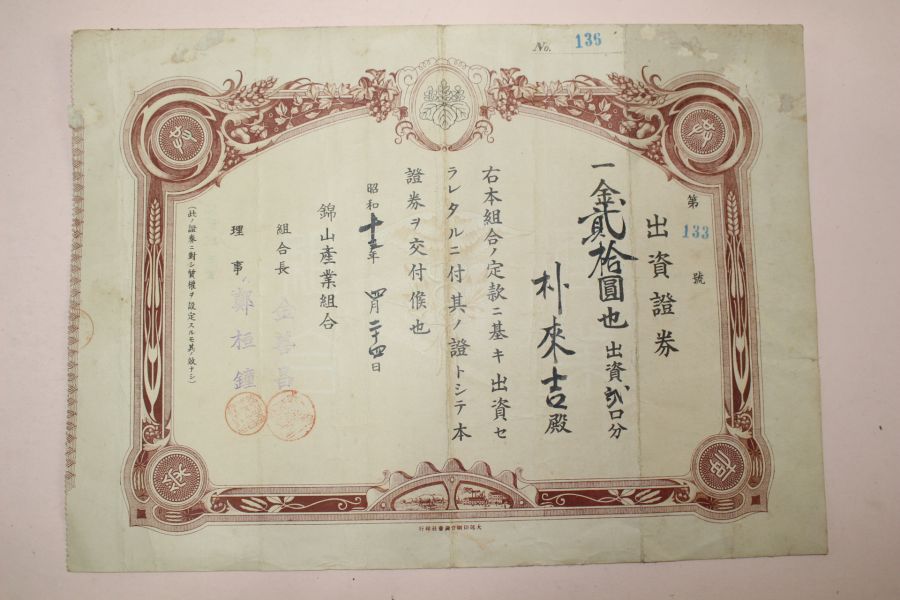 No. 136
出資證券
第133號
一金貳拾圓也 出資貳口分
朴來吉殿
右本組合ノ定款ニ基キ出資セ
ラレタルニ付其ノ證トシテ本
證券ヲ交付候也
昭和十五年四月二十四日
錦山產業組合
組合長 金善昌
理事 鄭桓鐘
(此ノ證券ニ對シ質權ヲ設定スルモ其ノ效ナシ)